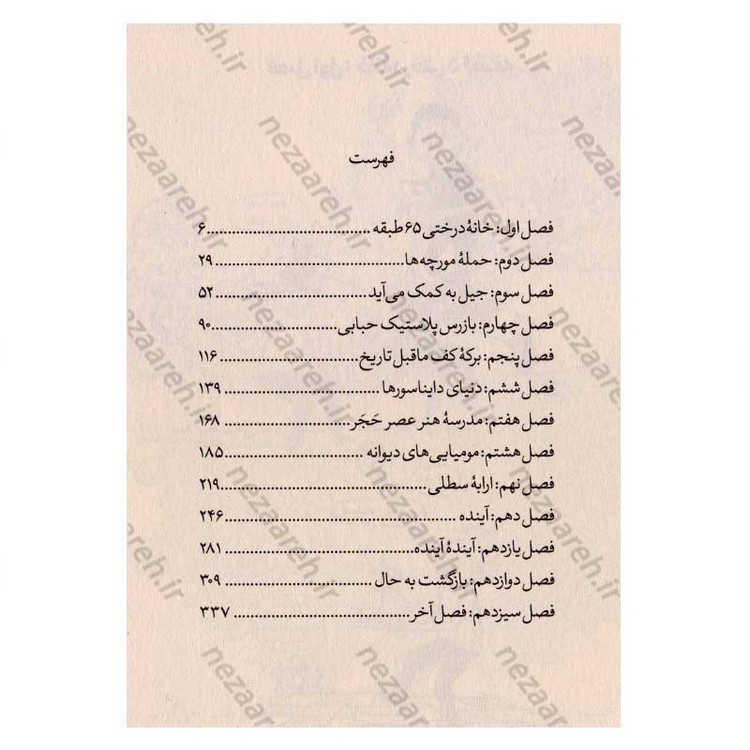 فهرست
فصل اول: خانهٔ درختی ۶۵ طبقه ........................................ ۶
فصل دوم: حملهٔ مورچه‌ها ........................................ ۲۹
فصل سوم: جیل به کمک می‌آید ........................................ ۵۲
فصل چهارم: بازرس پلاستیک حبابی ........................................ ۹۰
فصل پنجم: برکهٔ کف ماقبل تاریخ ........................................ ۱۱۶
فصل ششم: دنیای دایناسورها ........................................ ۱۳۹
فصل هفتم: مدرسهٔ هنر عصر حَجَر ........................................ ۱۶۸
فصل هشتم: مومیایی‌های دیوانه ........................................ ۱۸۵
فصل نهم: ارابهٔ سطلی ........................................ ۲۱۹
فصل دهم: آینده ........................................ ۲۴۶
فصل یازدهم: آیندهٔ آینده ........................................ ۲۸۱
فصل دوازدهم: بازگشت به حال ........................................ ۳۰۹
فصل سیزدهم: فصل آخر ........................................ ۳۳۷
nezaareh.ir